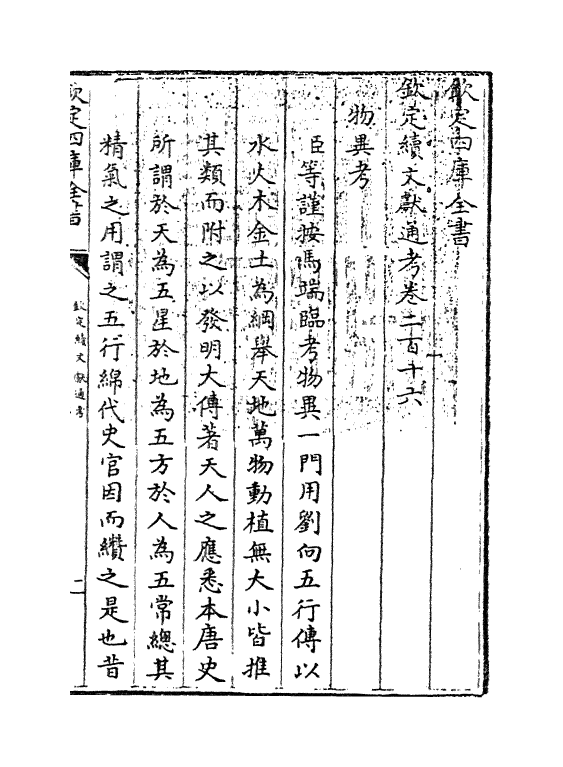 欽定四庫全書
欽定續文獻通考卷二百十六
物異考
臣等謹按馬端臨考物異一門用劉向五行傳以
水火木金土為綱舉天地萬物動植無大小皆推
其類而附之以發明大傳著天人之應悉本唐史
所謂於天為五星於地為五方於人為五常總其
精氣之用謂之五行綿代史官因而纘之是也昔
欽定四庫全書
欽定續文獻通考